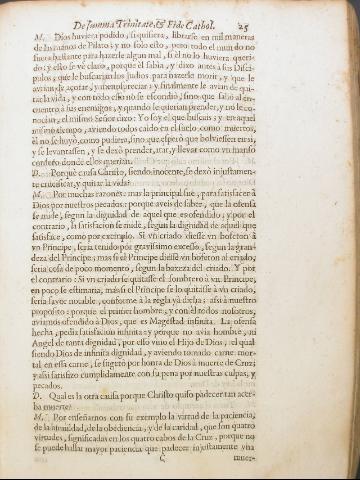 De summa Trinitate, & Fide Cathol. 25
M. Dios huviera podido, si quisiera, librarse en mil maneras
de las manos de Pilato; y no solo esto, pero todo el mundo no
fuera bastante para hazerle algun mal, si èl no lo huviera queri-
do: y esto se vè claro, porque el sabia, y dixo antes a sus Disci-
pulos, que le buscarian los Judios para hazerle morir, y que le
avian de açotar, y menospreciar; y finalmente le avian de qui-
tar la vida; y con todo esso no se escondiò, sino que saliò al en-
cuentro à sus enemigos; y quando le querian prender, y no le co-
nocian, el mismo Señor dixo: Yo soy el que buscais; y en aquel
mismo tiempo, aviendo todos caido en el suelo como muertos,
èl no se huyò, como pudiera, sino que esperò que bolviessen en si,
y se levantassen, y se dexò prender, atar, y llevar como vn manso
cordero donde ellos querian.
D. Porquè causa Christo, siendo inocente, se dexò injustamen-
te crucificar, y quitar la vida?
M. Por muchas razones: mas la principal fue, para satisfacer à
Dios por nuestros pecados: porque aveis de saber, que la ofensa
se mide, segun la dignidad de aquel que es ofendido; y por el
contrario, la satisfacion se mide, segun la dignidad de aquel que
satisface, como por exemplo. Si vn criado diesse vn bofeton à
vn Principe, seria tenido por gravissimo excesso, segun la gran-
deza del Principe; mas si el Principe diesse vn bofeton al criado,
seria cosa de poco momento, segun la baxeza del criado. Y por
el contrario: Si vn criado se quitasse el sombrero à vn Principe,
en poco se estimaria, mas si el Principe se lo quitasse à vn criado,
seria favor notable, conforme à la regla yà dicha: assi à nuestro
proposito: porque el primer hombre, y con èl todos nosotros,
aviamos ofendido à Dios, que es Magestad infinita. La ofensa
hecha, pedia satisfacion infinita; y porque no avia hombre, ni
Angel de tanta dignidad, por esso vino el Hijo de Dios, el qual
siendo Dios de infinita dignidad, y aviendo tomado carne mor-
tal, en essa carne, se sugetò por honra de Dios à muerte de Cruz;
y assi satisfizo cumplidamente con su pena por nuestras culpas, y
pecados.
D. Qual es la otra causa porque Christo quiso padecer tan acer-
ba muerte?
M. Por enseñarnos con su exemplo la virtud de la paciencia,
de la humildad, de la obediencia, y de la caridad, que son quatro
virtudes, significadas en los quatro cabos de la Cruz, porque no
se puede hallar mayor paciencia que padecer injustamente vna
C muer-